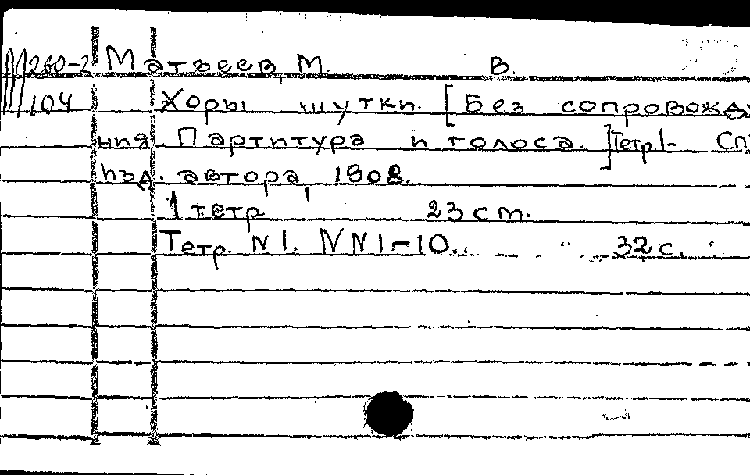 М260-2 Матвеев, М. В.
104 Хоры шутки. [Без сопровожд
ния Партитура и голоса.] Тетр 1- СП
изд. автора, 1908.
1 тетр 23 cm.
Тетр. N 1. NN 1-10. 32 с.